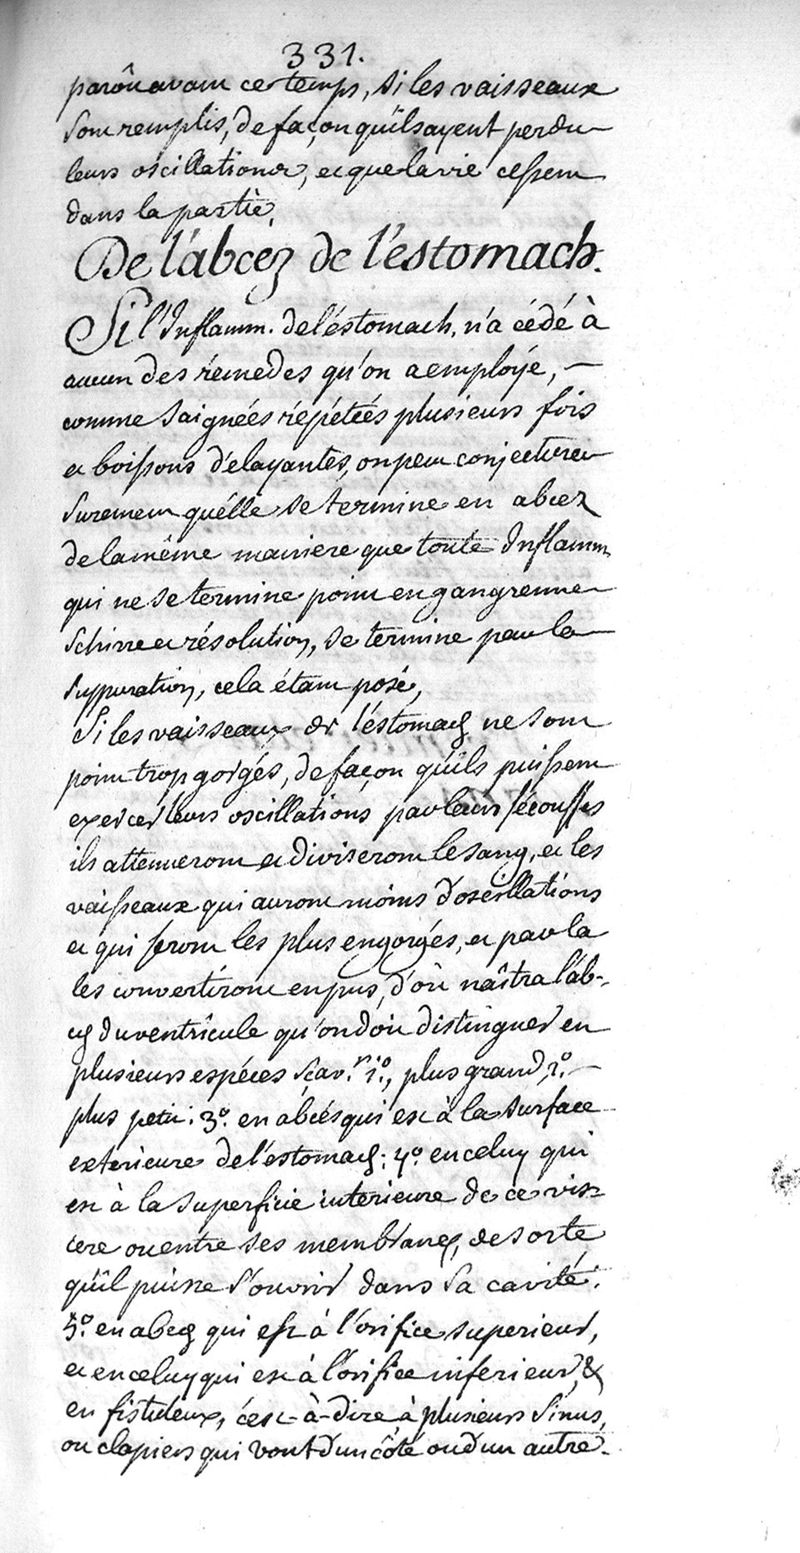 331.
paroît avant ce temps, si les vaisseaux
sont remplis, de façon qu'ils ayent perdu
leurs oscillations, et que la vie cessent
dans la partie.
De l'abcéz de l'estomach.
Si l'Inflamm. de l'éstomach, n'a cédé à
aucun des rémedes qu'on a employé,
comme saignées répétées plusieurs fois
et boissons délayantes, on peut conjecturer
surement qu'élle se termine en abcez
de la même maniere que toute Inflamm.
qui ne se termine point en gangrenne
schirre et résolution, se termine par la
suppuration, cela étant posé,
Si les vaisseaux de l'éstomach ne sont
point trop gorgés, de façon qu'ils puissent
exercer leurs oscillations par leurs sécousses
ils attenueront et diviseront le sang, et les
vaisseaux qui auront moins d'oscillations
et qui seront les plus engorgés, et par la
les convertiront en pus, d'où naîtra l'ab-
cés du ventricule qu'on doit distinguer en
plusieurs espéces sçav.r 1.º, plus grand, 2.º
plus petit: 3.º en abcés qui est à la surface
exterieure de l'estomach: 4.º en celuy qui
est à la superficie interieure de ce vis-
cere ou entre ses membranes, de sorte
qu'il puisse s'ouvrir dans sa cavité.
5.º en abcés qui est à l'orifice superieur,
et en celuy qui est à l'orifice inferieur, &
en fistuleux, c'est-à-dire à plusieurs sinus,
ou clapiers qui vont d'un côté ou d'un autre.